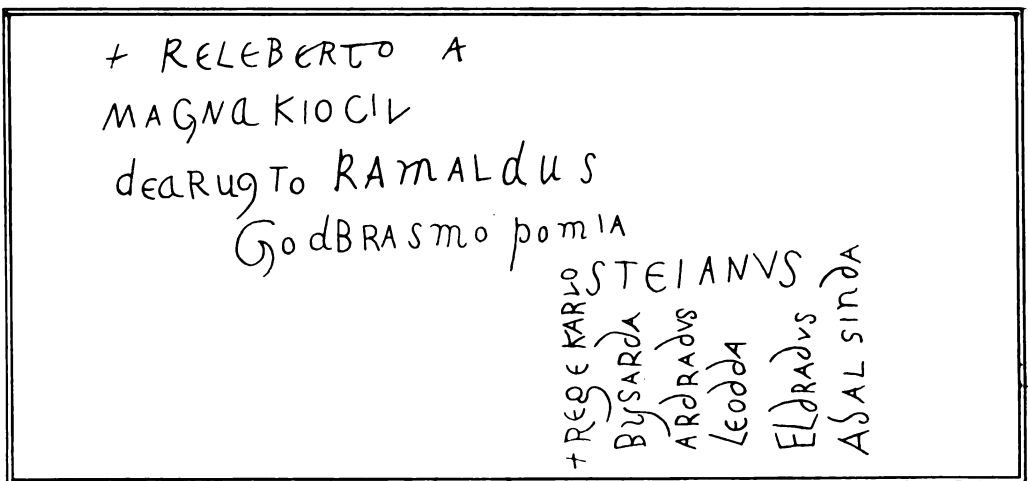 + RELEBERTO A
MAGNA KIOCIL
deaRugTo RAmALdUS
GodBRASmo pomIA
STEIANVS
+ REGE KARLO
BYSARdA
ARdRAdVS
LeoddA
ELdRAdVS
ASALSindA